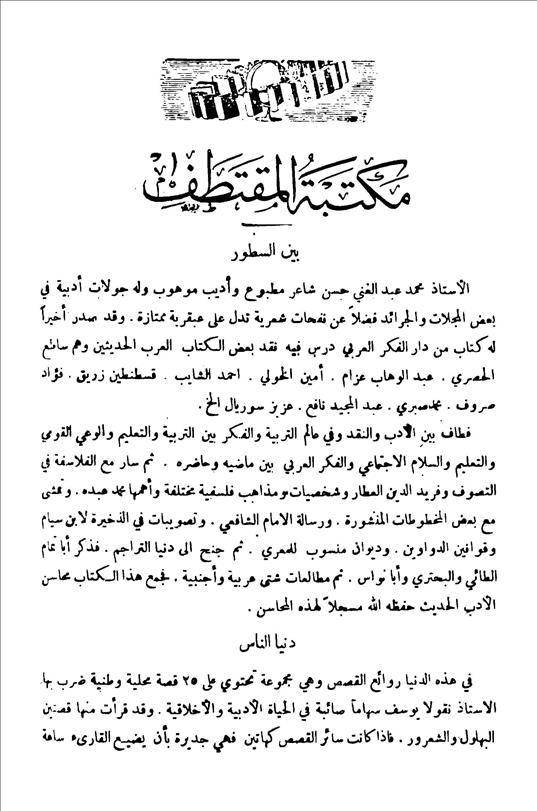 مكتبة المقتطف
بين السطور
الأستاذ محمد عبد الغني حسن شاعر مطبوع وأديب موهوب وله جولات أدبية في
بعض المجلات والجرائد فضلاً عن نفحات شعرية تدل على عبقرية ممتازة . وقد صدر أخيراً
له كتاب من دار الفكر العربي درس فيه نقد بعض الكتاب العرب الحديثين وهم ساطع
الحصري . عبد الوهاب عزام . أمين الخولي . احمد الشايب . قسطنطين زريق . فؤاد
صروف . محمد صبري . عبد المجيد نافع . عزيز سوريال الخ .
فطاف بين الأدب والنقد وفي عالم التربية والفكر بين التربية والتعليم والوعي القومي
والتعليم والسلام الاجتماعي والفكر العربي بين ماضيه وحاضره . ثم سار مع الفلاسفة في
التصوف وفريد الدين العطار وشخصيات ومذاهب فلسفية مختلفة وأهمها محمد عبده . وتمشى
مع بعض المخطوطات المنشورة . ورسالة الامام الشافعي . وتصويبات في الذخيرة لابن سيام
وقوانين الدواوين . وديوان منسوب للمعري . ثم جنح الى دنيا التراجم . فذكر أبا تمام
الطائي والبحتري وأبا نواس . ثم مطالعات شتى عربية وأجنبية . فجمع هذا الكتاب محاسن
الأدب الحديث حفظه الله مسجلاً لهذه المحاسن .
دنيا الناس
في هذه الدنيا روائع القصص وهي مجموعة تحتوي على ٢٥ قصة محلية وطنية ضرب بها
الاستاذ نقولا يوسف سهاماً صائبة في الحياة الأدبية والأخلاقية . وقد قرأت منها قصتين
البهلول والشعرور . فاذا كانت سائر القصص كهاتين فهي جديرة بأن يضيع القارىء ساعة